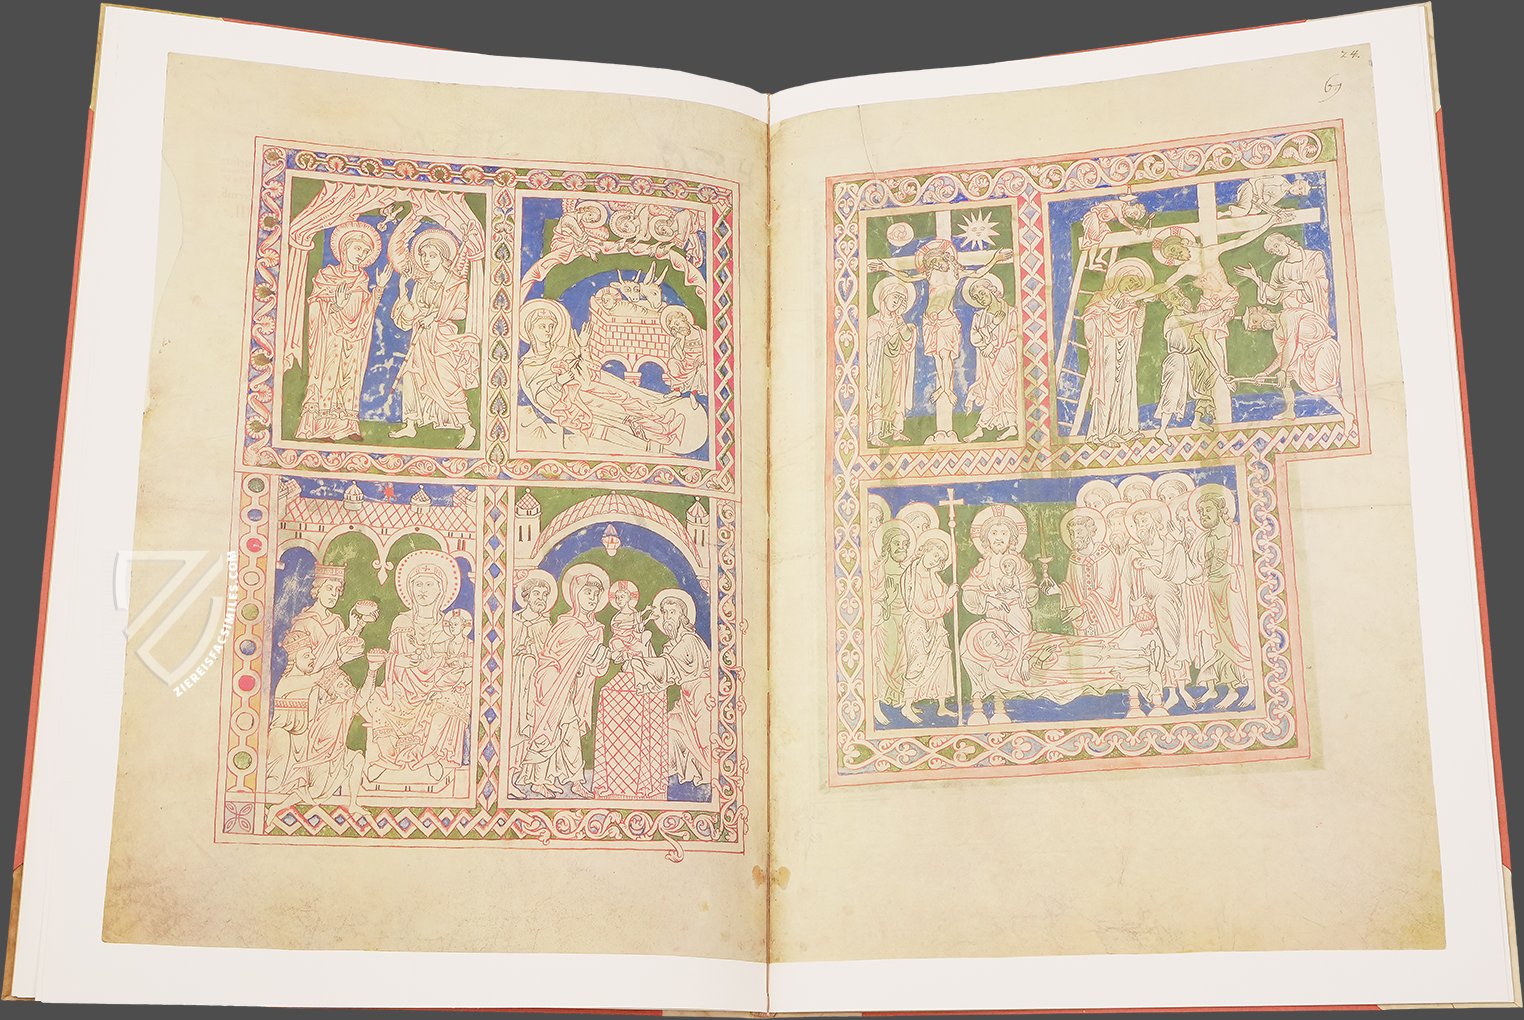 24.
69
ZIEREISFACSIMILES.COM